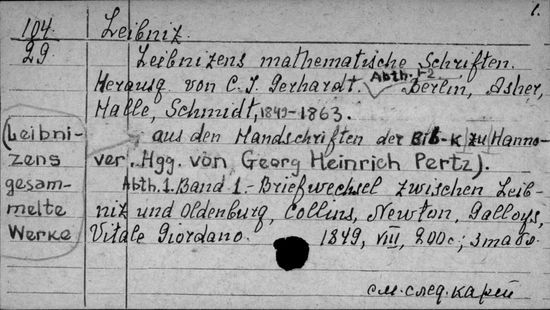 1.
104
29
Leibniz.
Leibnizens mathematische Schriften.
Herausg. von C. J. Gerhardt. Abth. 1-2. Berlin, Asher,
Halle, Schmidt, 1849-1863.
(Leibni-
zens
gesam-
melte
Werke
aus den Handschriften der Bib-K zu Hanno-
ver. Hgg. von Georg Heinrich Pertz).
Abth. 1. Band 1.- Briefwechsel zwischen Leib-
niz und Oldenburg, Collins, Newton, Galloys,
Vitale Giordano. 1849, VIII, 200c; 3
см. след. карт